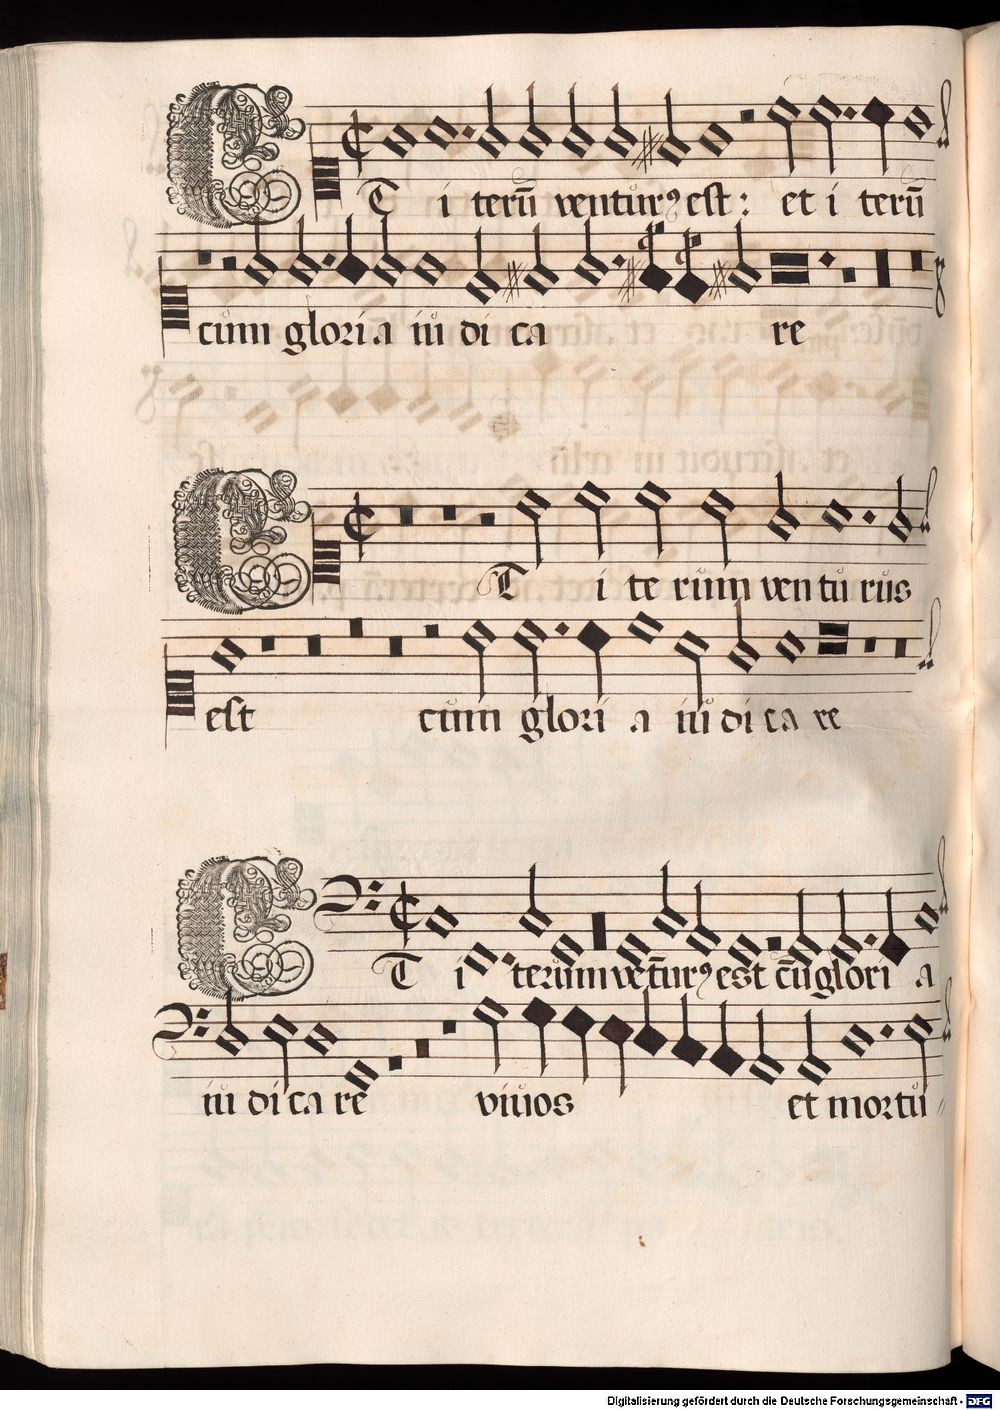 ET i terū venturꝰ est : et i terū
cum glori a iu di ca re
ET i te rum ven tu rus
est cum glori a iu di ca re
ET i terum vētur ꝰ est cū glori a
iu di ca re viuos et mortu
Digitalisierung gefördert durch die Deutsche Forschungsgemeinschaft - DFG